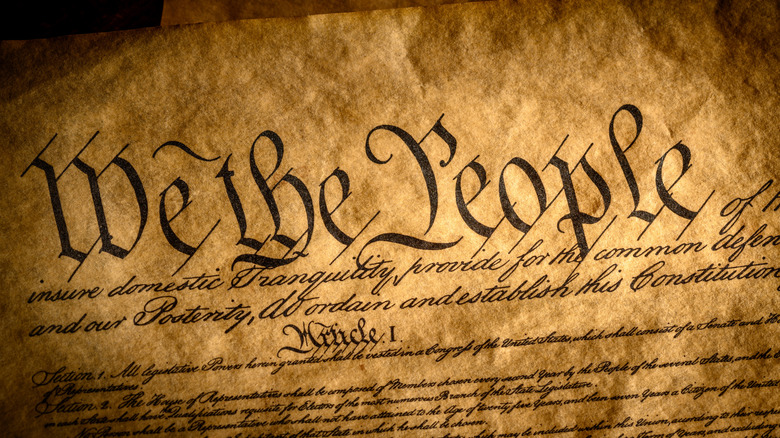 We the People of
insure domestic Tranquility, provide for the common defen
and our Posterity, do ordain and establish this Constitution
Article. I.
Section. 1. All legislative Powers herein granted shall be vested in a Congress of the United States, which shall consist of a Senate and
of Representatives.
Section. 2. The House of Representatives shall be composed of Members chosen every second Year by the People of the several States, and the
in each State shall have the Qualifications requisite for Electors of the most numerous Branch of the State Legislature.
No Person shall be a Representative who shall not have attained to the Age of twenty five Years, and been seven Years a Citizen of the United
of that State in which he shall be chosen.
which may be included within this Union, according to their